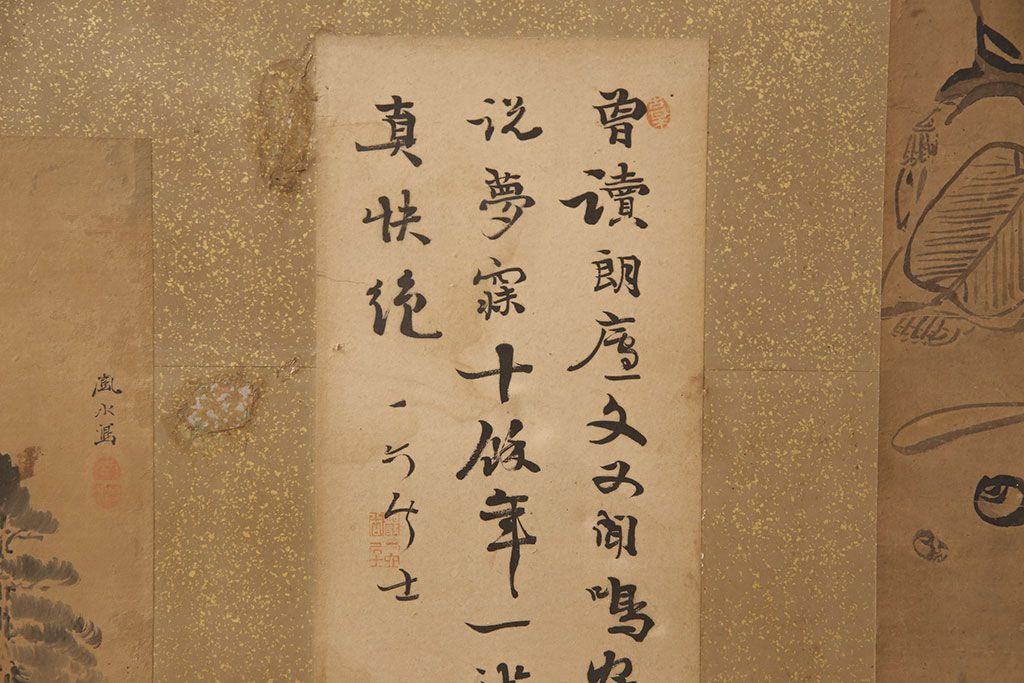 曽讀朗廬文又聞鳴
説夢寐十餘年一
真快絶
士
水寫